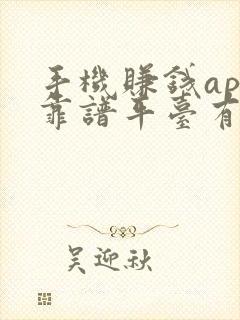 手機賺錢ap
靠譜平臺有
吴迎秋